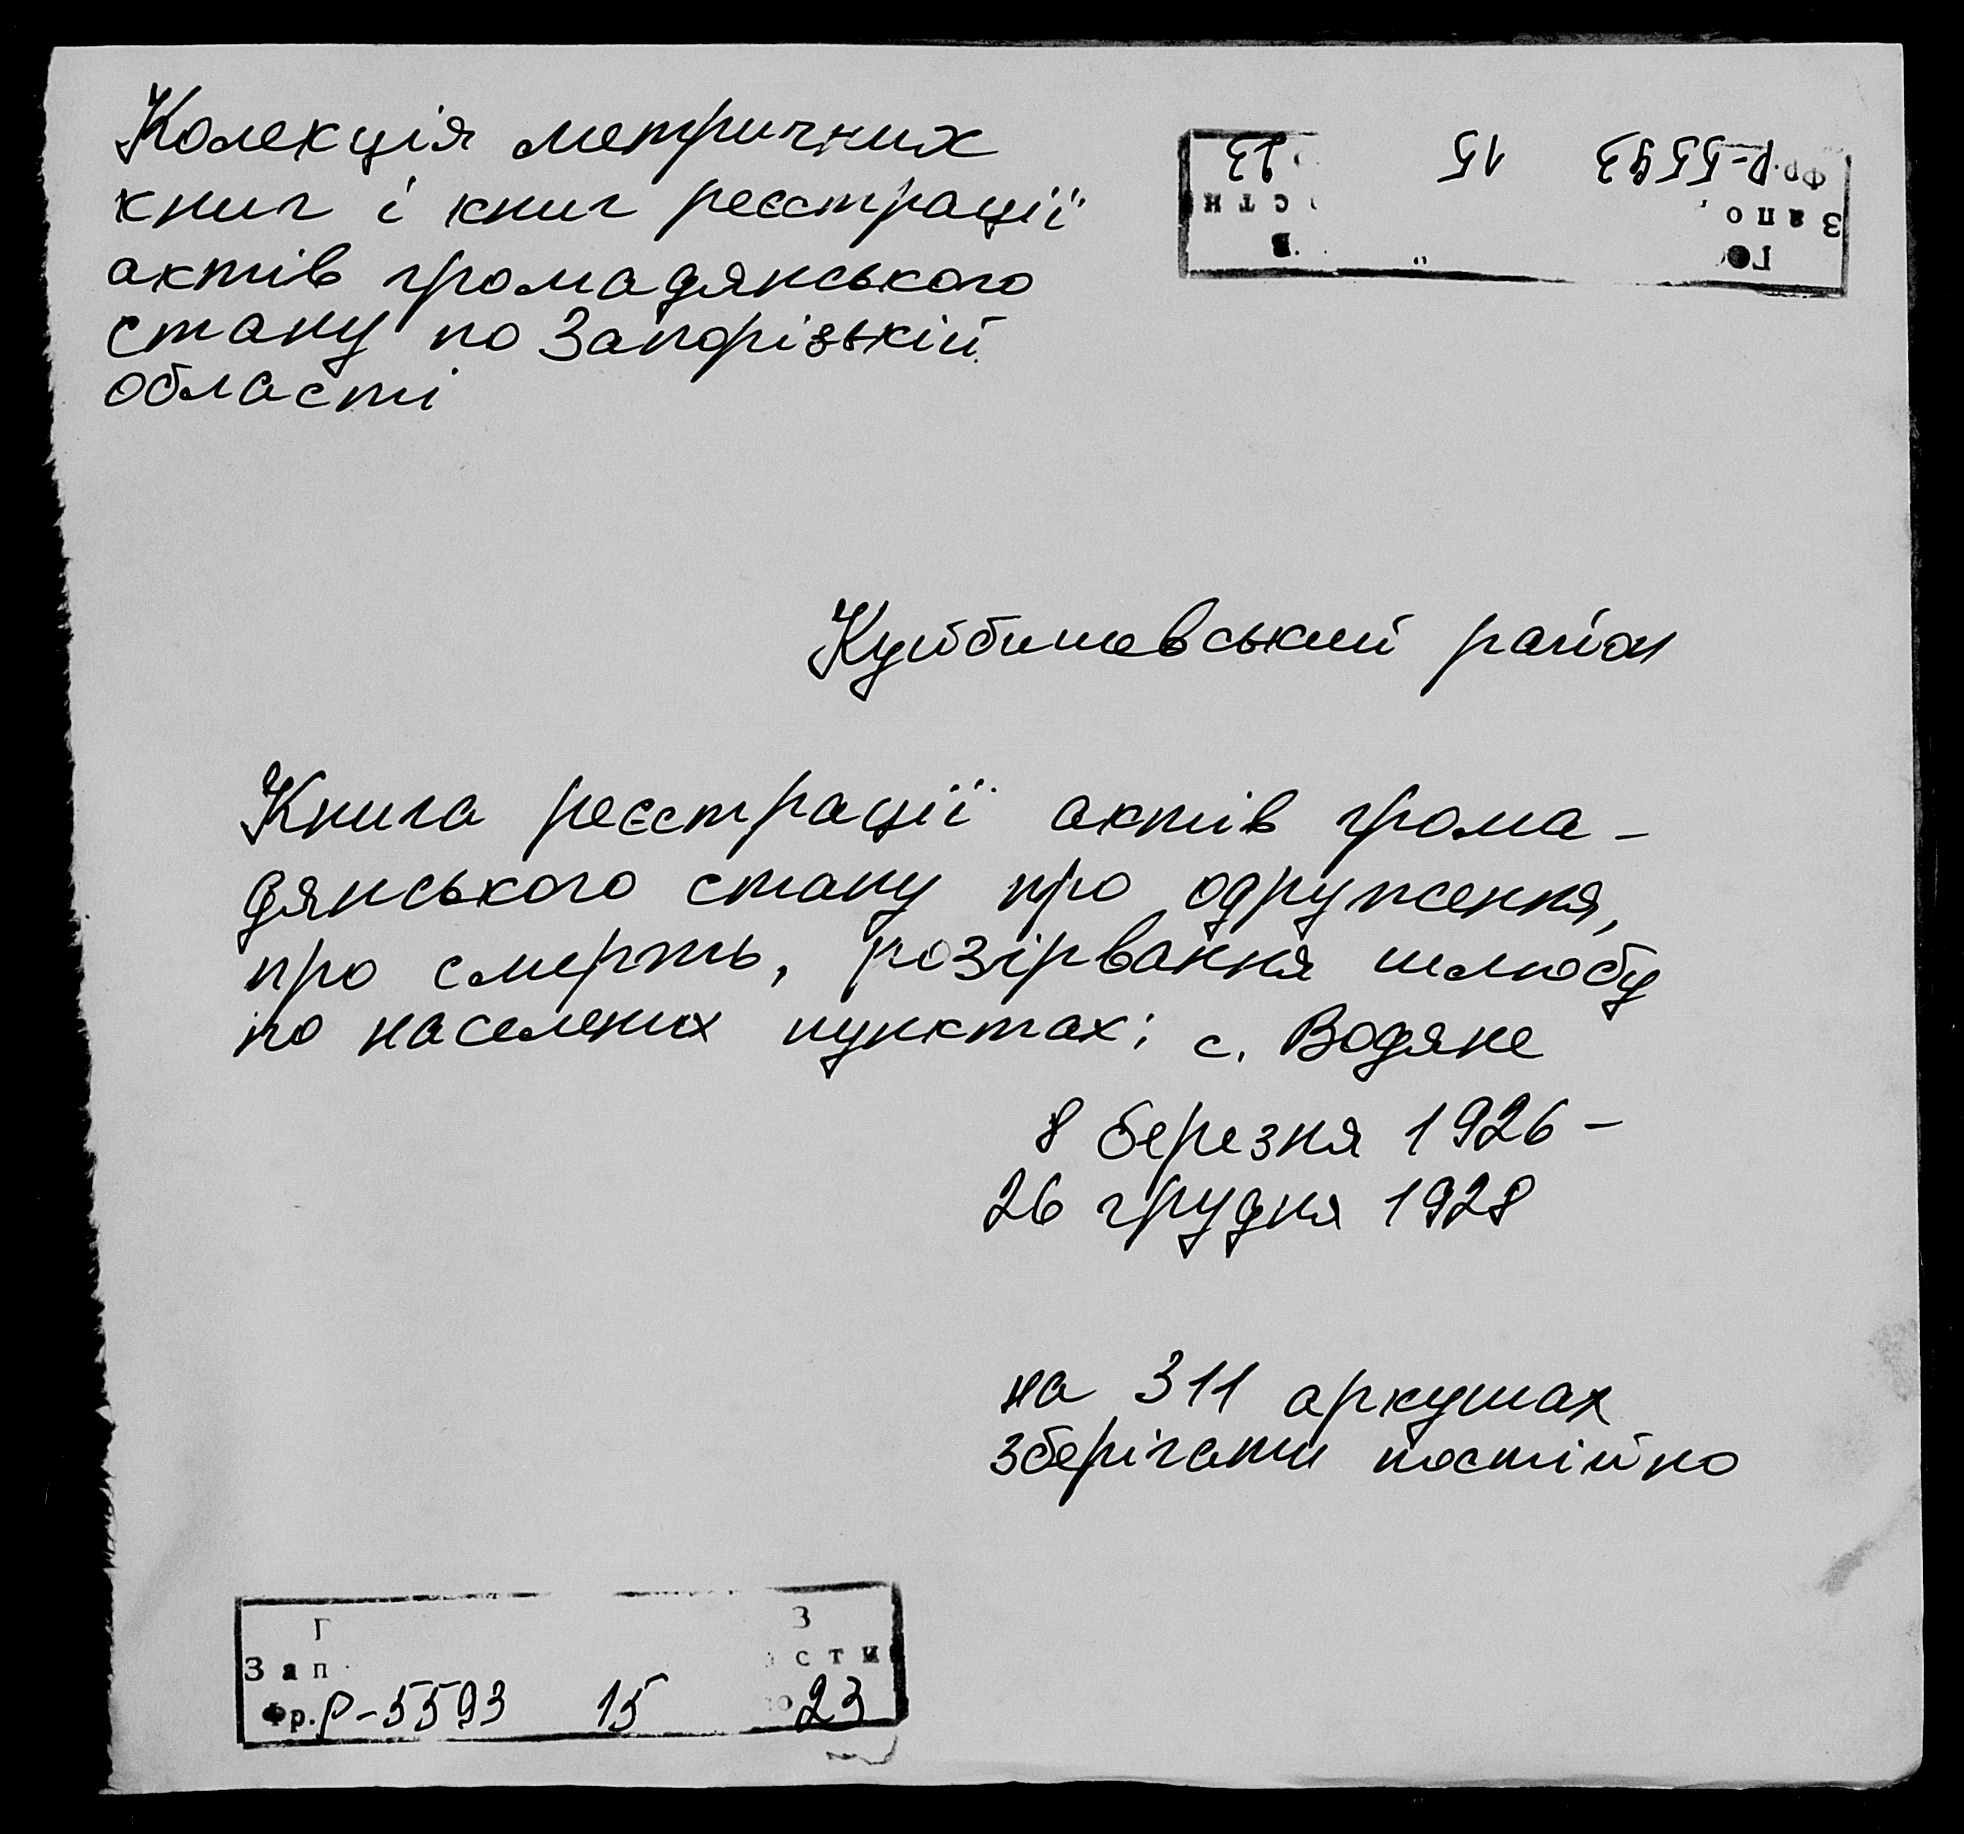 Колекція метричних
книг і книг реєстрації
актів громадянського
стану по Запорізькій
області
Фр. Р-5593 15 23
Запо стн
Куйбишевський район
Книга реєстрації актів грома-
дянського стану про одруження,
про смерть, розірвання шлюбу
по населених пунктах: с. Водяне
8 березня 1926 –
26 грудня 1928
на 311 аркушах
зберігати постійно
Г З
Зап сти
Фр. Р-5593 15 23